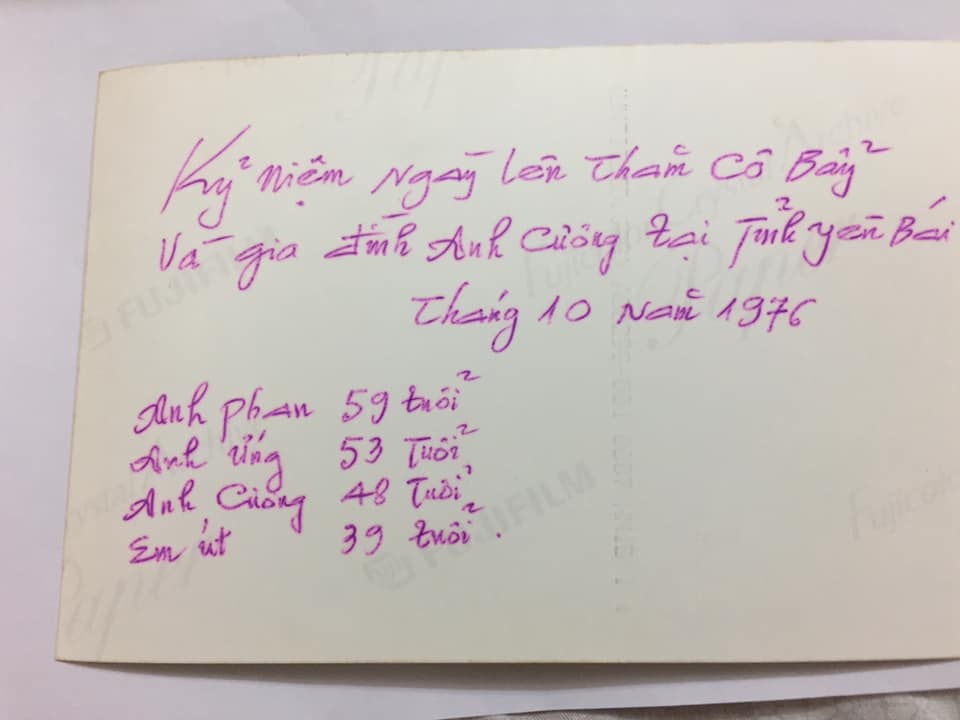 Kỷ niệm Ngày lên Thăm Cô Bảy
Và gia đình Anh Cường tại Tỉnh Yên Bái
Tháng 10 Năm 1976
Anh Phan 59 tuổi
Anh Ứng 53 Tuổi
Anh Cường 48 Tuổi
Em út 39 tuổi.
FUJIFILM
FUJIFILM